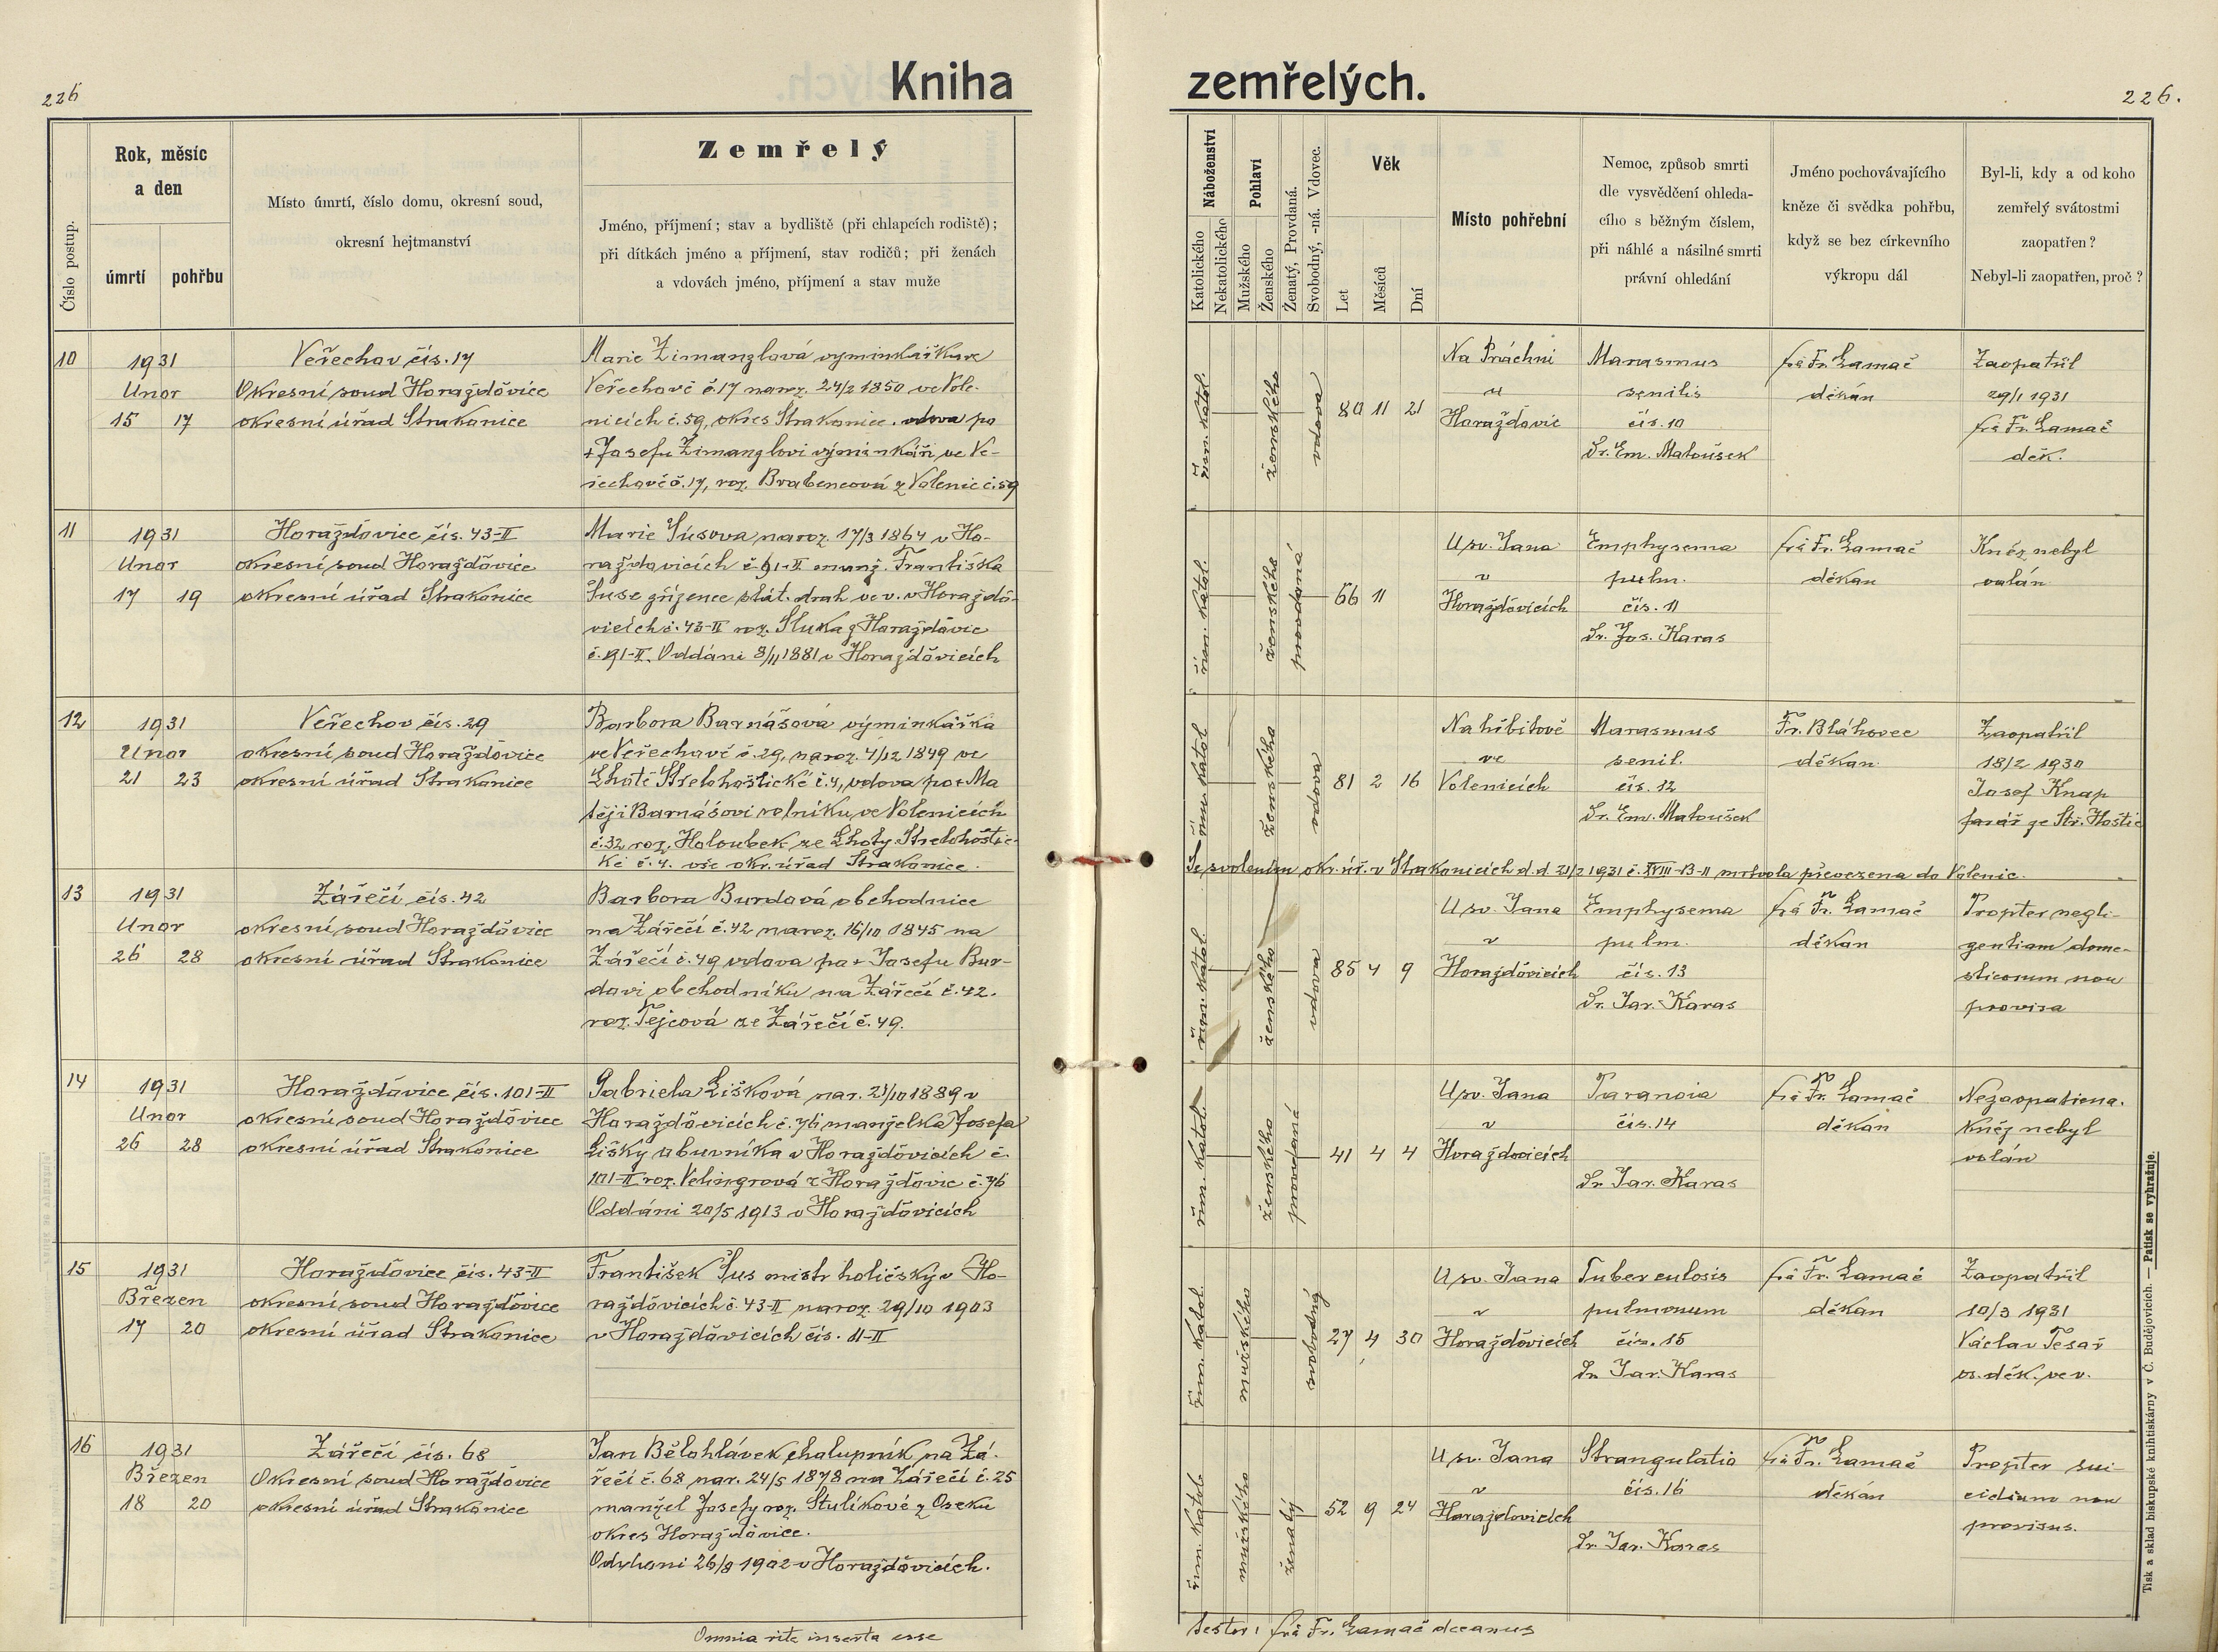 226
Kniha
zemřelých.
226.
Číslo postup.
Rok, měsíc
a den
úmrtí
pohřbu
Místo úmrtí, číslo domu, okresní soud,
okresní hejtmanství
Zemřelý
Jméno, příjmení; stav a bydliště (při chlapcích rodiště);
při dítkách jméno a příjmení, stav rodičů; při ženách
a vdovách jméno, příjmení a stav muže
Náboženství
Katolického
Nekatolického
Pohlaví
Mužského
Ženského
Ženatý, Provdaná.
Svobodný, -ná. Vdovec.
Věk
Let
Měsíců
Dní
Místo pohřební
Nemoc, způsob smrti
dle vysvědčení ohleda-
cího s běžným číslem,
při náhlé a násilné smrti
právní ohledání
Jméno pochovávajícího
kněze či svědka pohřbu,
když se bez církevního
výkropu dál
Byl-li, kdy a od koho
zemřelý svátostmi
zaopatřen?
Nebyl-li zaopatřen, proč?
10
1931
Unor
15 17
Veřechov čís. 17
Okresní soud Horažďovice
okresní úřad Strakonice
Marie Zimanzlová výminkářka ve
Veřechově č. 17 naroz. 24/2 1850 ve Vole-
nicích č. 59, okres Strakonice. vdova po
+ Josefu Zimanzlovi výminkáři ve Ve-
řechově č. 17, roz. Brabencová z Volenic č. 59
řím. katol.
ženského
vdova
80 11 21
Na Práchni
u
Horažďovic
Marasmus
senilis
čís. 10
Dr. Em. Matoušek
frá Fr. Lamač
děkán
Zaopatřil
29/1 1931
frá Fr. Lamač
děk.
11
1931
Unor
17 19
Horažďovice čís. 43-II
okresní soud Horažďovice
okresní úřad Strakonice
Marie Šusova naroz. 17/3 1864 v Ho-
ražďovicích č. 91-II manž. Františka
Šuse zřízence stát. drah ve v. v Horažďo-
vicích č. 43-II roz. Sluka z Horažďovic
č. 91-II. Oddáni 8/11 1881 v Horažďovicích
řím. katol.
ženského
provdaná
66 11
U sv. Jana
v
Horažďovicích
Emphysema
pulm.
čís. 11
Dr. Jos. Karas
frá Fr. Lamač
děkan
Kněz nebyl
volán
12
1931
Unor
21 23
Veřechov čís. 29
okresní soud Horažďovice
okresní úřad Strakonice
Barbora Barnášová výminkářka
ve Veřechově č. 29, naroz. 4/12 1849 ve
Lhotě Střelohoštické č. 4, vdova po + Ma
těji Barnášovi rolníku ve Volenicích
č. 32 roz. Holoubek ze Lhoty Střelohoštic-
ké č. 4. vše okr. úřad Strakonice.
řím. katol
ženského
vdova
81 2 16
Na hřbitově
ve
Volenicích
Marasmus
senil.
čís. 12
Dr. Em. Matoušek
Fr. Bláhovec
děkan
Zaopatřil
18/2 1930
Josef Knap
farář ze Stř. Hoštic
Se svolením okr. úř. v Strakonicích d.d. 21/2 1931 č. XVIII-13-II mrtvola převezena do Volenic.
13
1931
Unor
26 28
Zářečí čís. 42
okresní soud Horažďovice
okresní úřad Strakonice
Barbora Burdová obchodnice
na Zářečí č. 42 naroz. 16/10 1845 na
Zářečí č. 49 vdova po + Josefu Bur-
dovi obchodníku na Zářečí č. 42.
roz. Tejcová ze Zářečí č. 49.
řím. katol.
ženského
vdova
85 4 9
U sv. Jana
v
Horažďovicích
Emphysema
pulm.
čís. 13
Dr. Jar. Karas
frá Fr. Lamač
děkan
Propter negli-
gentiam dome-
sticorum non
provisa
14
1931
Unor
26 28
Horažďovice čís. 101-II
okresní soud Horažďovice
okresní úřad Strakonice
Gabriela Lišková nar. 23/10 1889 v
Horažďovicích č. 76 manželka Josefa
Lišky obuvníka v Horažďovicích č.
101-II roz. Velingrová z Horažďovic č. 76
Oddáni 20/5 1913 v Horažďovicích
řím. katol.
ženského
provdaná
41 4 4
U sv. Jana
v
Horažďovicích
Paranoia
čís. 14
Dr. Jar. Karas
frá Fr. Lamač
děkan
Nezaopatřena.
Kněz nebyl
volán
15
1931
Březen
17 20
Horažďovice čís. 43-II
okresní soud Horažďovice
okresní úřad Strakonice
František Šus mistr holičský v Ho-
ražďovicích č. 43-II naroz. 29/10 1903
v Horažďovicích čís. 11-II
řím. katol.
mužského
svobodný
27 4 30
U sv. Jana
v
Horažďovicích
Tuberculosis
pulmonum
čís. 15
Dr. Jar. Karas
frá Fr. Lamač
děkan
Zaopatřil
10/3 1931
Václav Tesař
os. děk. ve v.
16
1931
Březen
18 20
Zářečí čís. 68
Okresní soud Horažďovice
okresní úřad Strakonice
Jan Bělohlávek chalupník na Zá-
řečí č. 68 nar. 24/5 1878 na Zářečí č. 25
manžel Josefy roz. Stulíkové z Oseku
okres Horažďovice.
Oddáni 26/8 1902 v Horažďovicích.
řím. katol.
mužského
ženatý
52 9 24
U sv. Jana
v
Horažďovicích
Strangulatio
čís. 16
Dr. Jar. Karas
frá Fr. Lamač
děkán
Propter sui-
cidium non
provisus.
Omnia rite inserta esse
testor: frá Fr. Lamač decanus
Tisk a sklad biskupské knihtiskárny v Č. Budějovicích. — Patisk se vyhražuje.